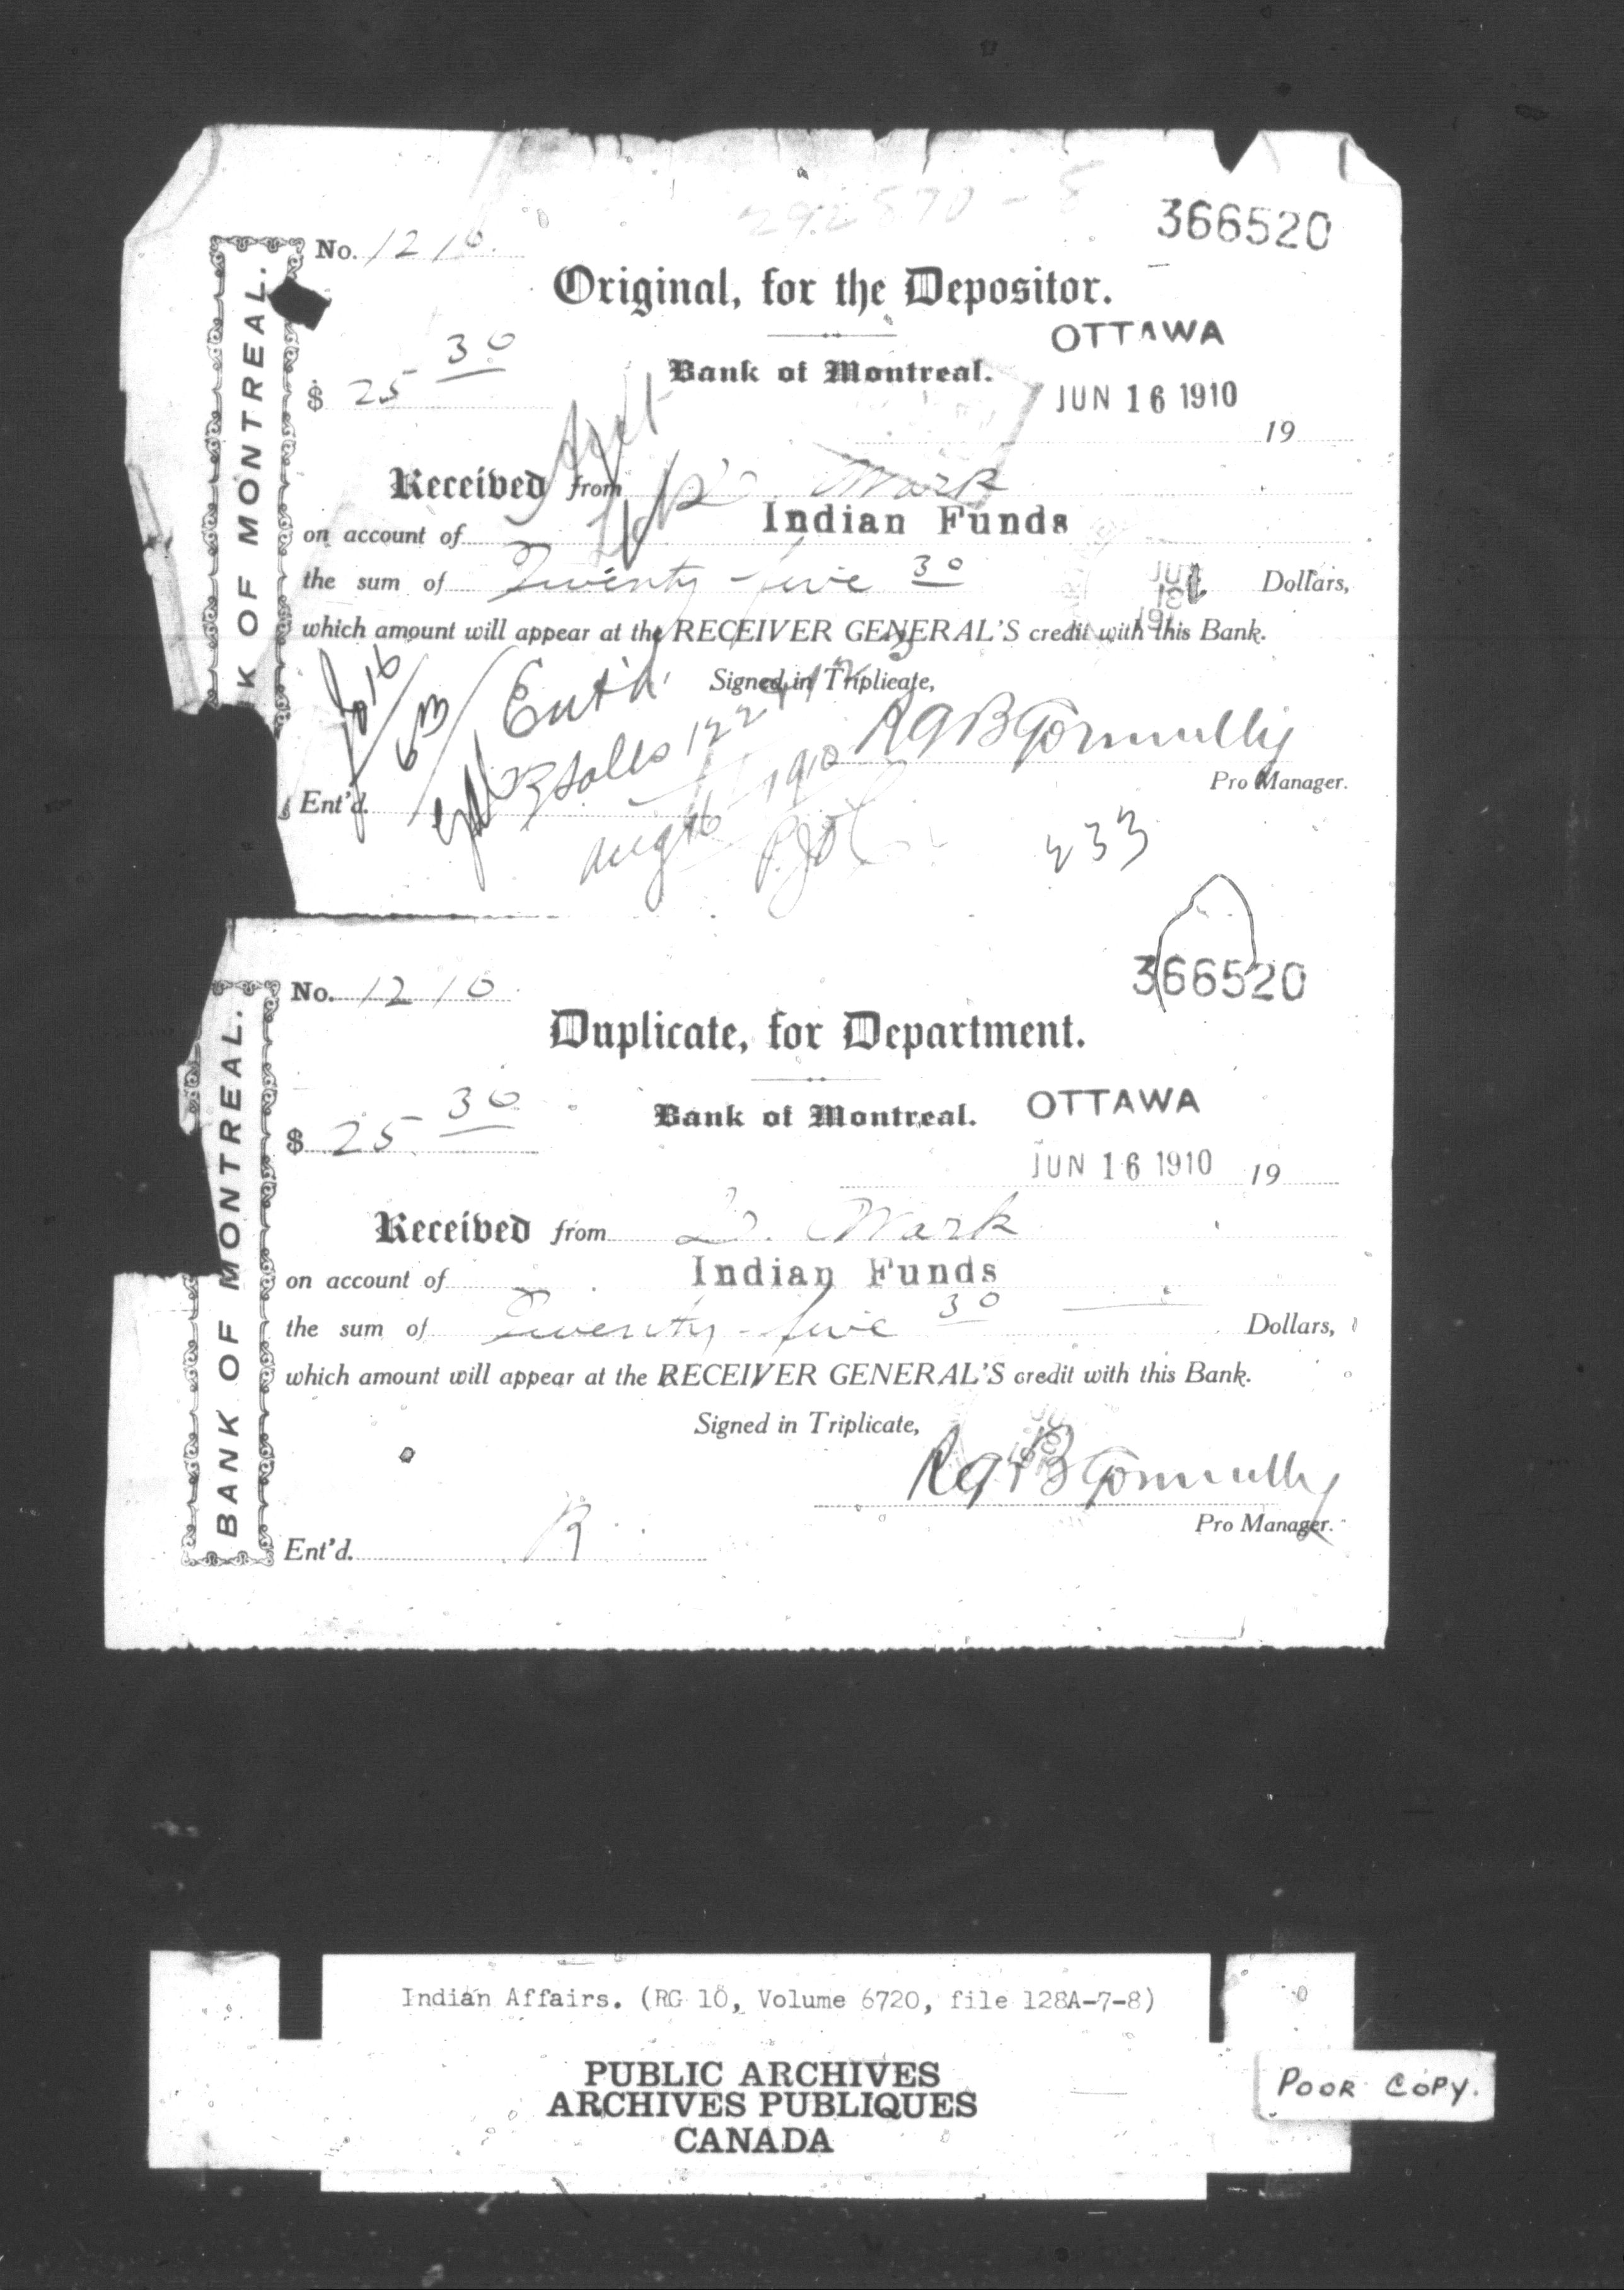 292570-8
366520
No. 1210.
Original, for the Depositor.
K OF MONTREAL.
OTTAWA
$ 25 30
Bank of Montreal.
JUN 16 1910
19
Received from Mark
on account of Indian Funds
the sum of Twenty-five 30 Dollars,
which amount will appear at the RECEIVER GENERAL'S credit with this Bank.
Signed in Triplicate,
Pro Manager.
Ent'd.
Aug 16 1910
233
366520
No. 1210
Duplicate, for Department.
BANK OF MONTREAL.
OTTAWA
$ 25 30
Bank of Montreal.
JUN 16 1910 19
Received from D. Mark
on account of Indian Funds
the sum of Twenty-five 30 Dollars,
which amount will appear at the RECEIVER GENERAL'S credit with this Bank.
Signed in Triplicate,
Pro Manager.
Ent'd. R
Indian Affairs. (RG 10, Volume 6720, file 128A-7-8)
PUBLIC ARCHIVES
ARCHIVES PUBLIQUES
CANADA
POOR COPY.